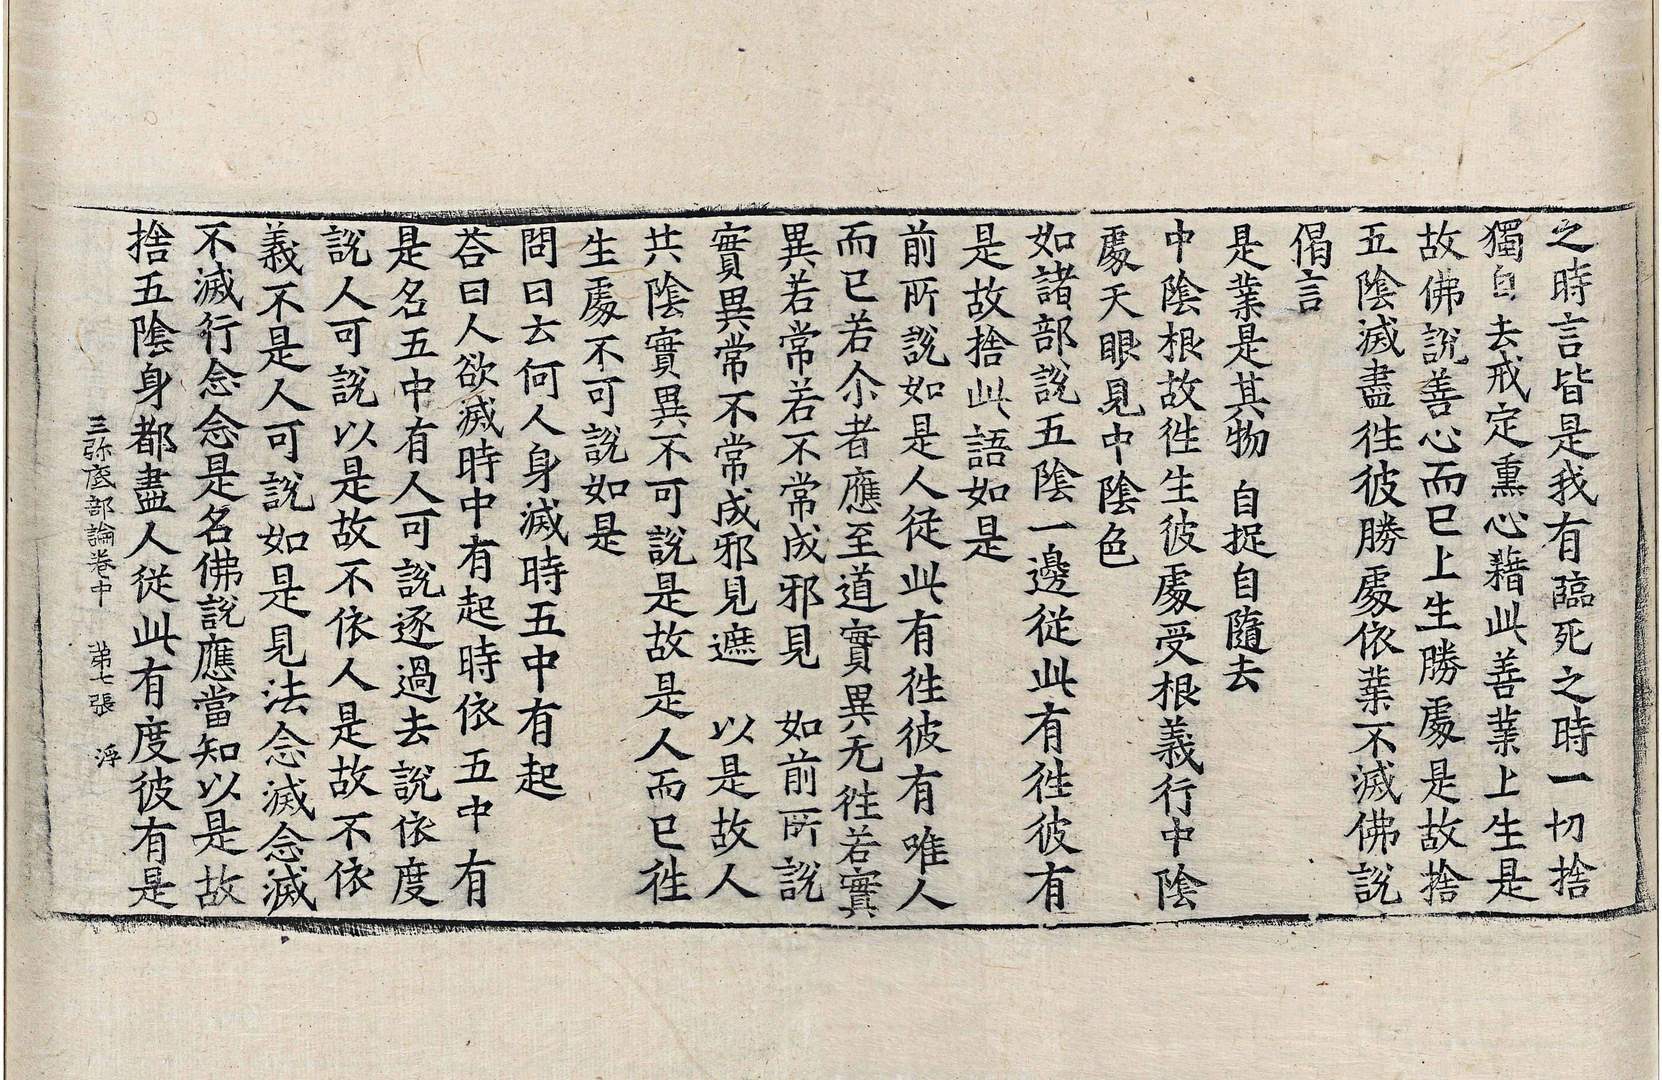 之時言皆是我有臨死之時一切捨
獨自去戒定熏心藉此善業上生是
故佛說善心而已上生勝處是故捨
五陰滅盡往彼勝處依業不滅佛說
偈言
是業是其物 自捉自隨去
中陰根故往生彼處受根義行中陰
處天眼見中陰色
如諸部說五陰一邊從此有往彼有
是故捨此語如是
前所說如是人從此有往彼有唯人
而已若尒者應至道實異无往若實
異若常若不常成邪見 如前所說
實異常不常成邪見遮 以是故人
共陰實異不可說是故是人而已往
生處不可說如是
問曰云何人身滅時五中有起
荅曰人欲滅時中有起時依五中有
是名五中有人可說逐過去說依度
說人可說以是故不依人是故不依
義不是人可說如是見法念滅念滅
不滅行念念是名佛說應當知以是故
捨五陰身都盡人從此有度彼有是
三弥底部論卷中 第七張 浮